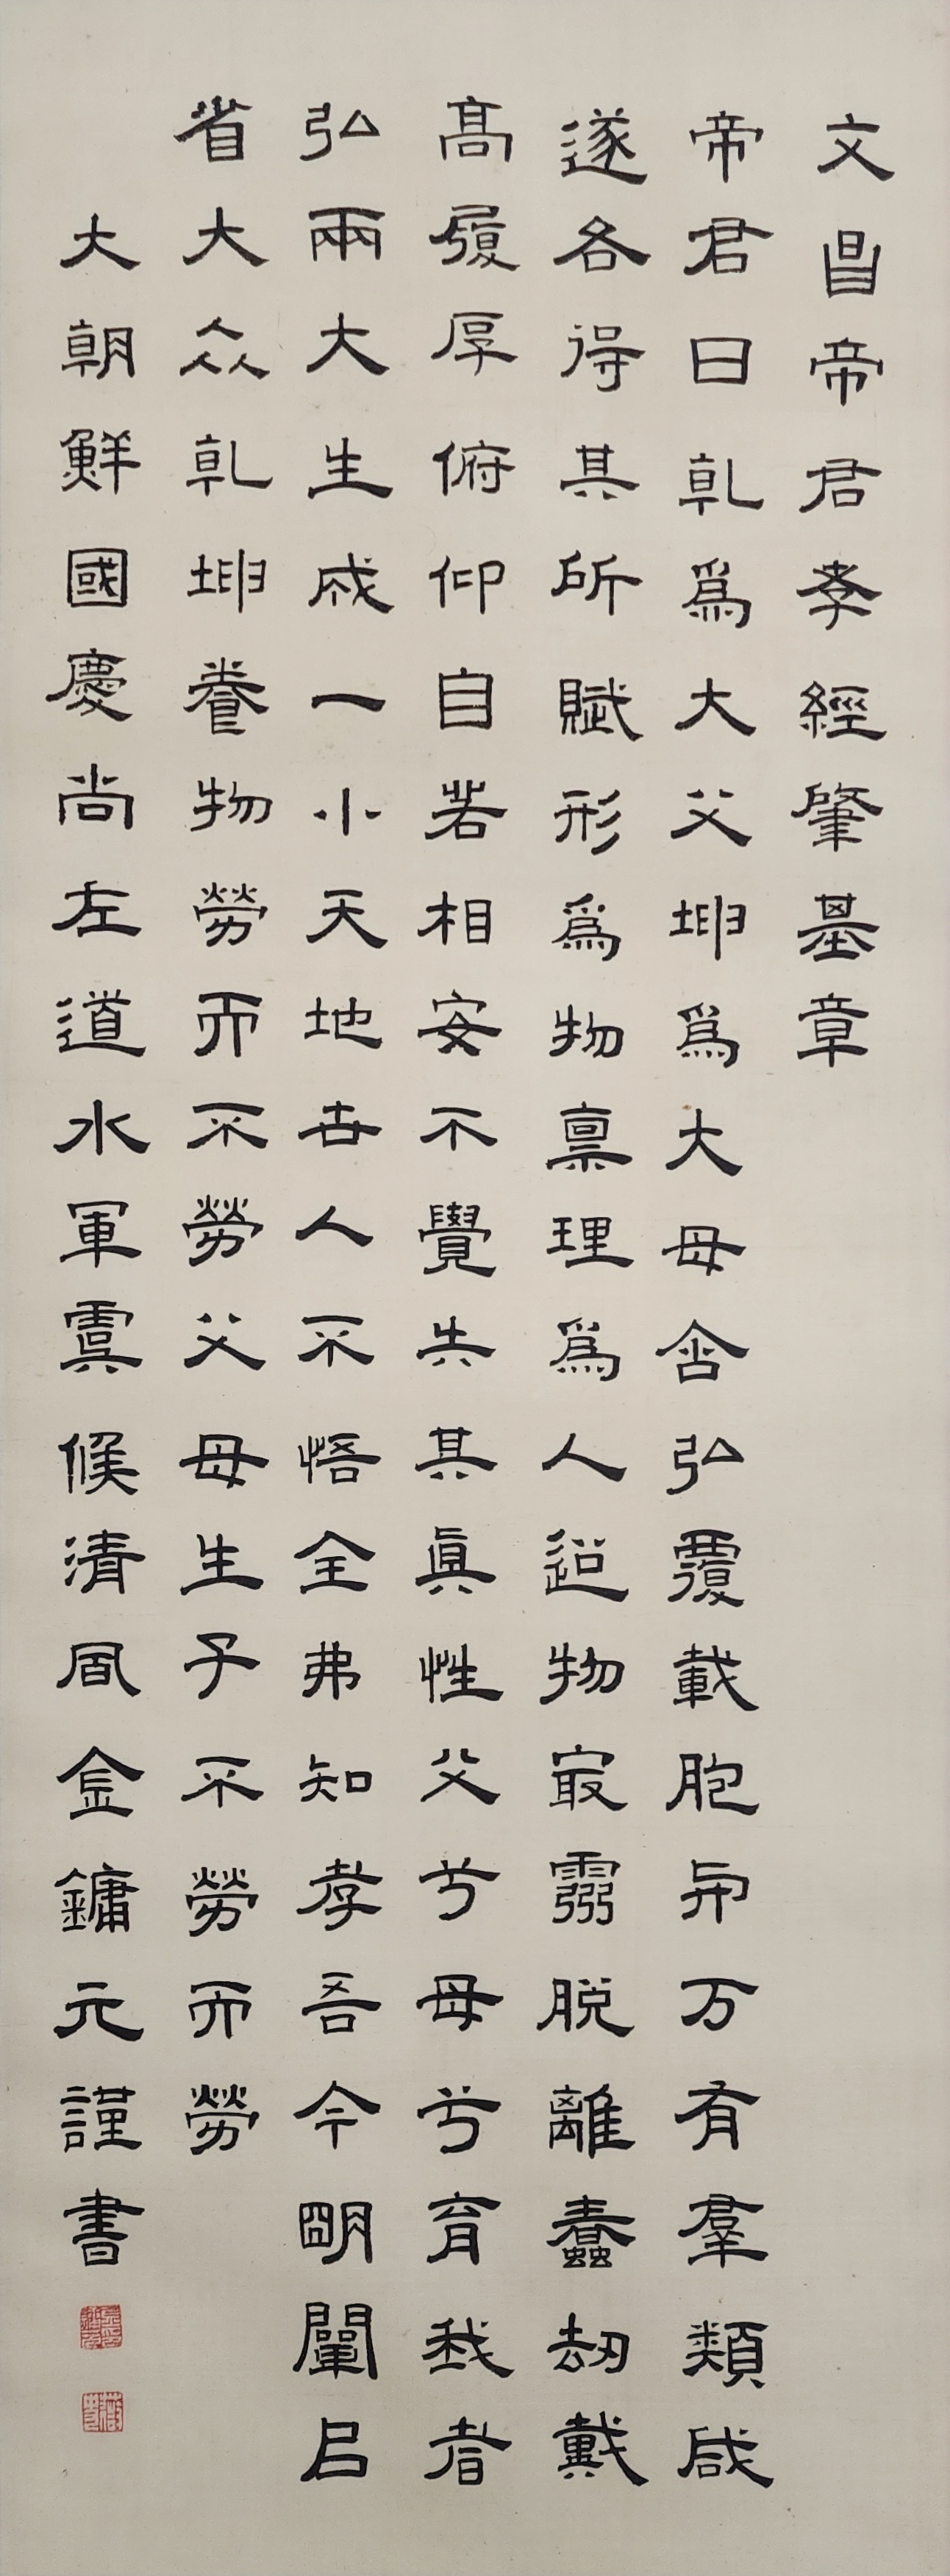 文昌帝君孝經肇基章
帝君曰乹爲大父坤爲大母含弘覆載胞与万有羣類咸
遂各得其所賦形爲物禀理爲人超物最靈脱離蠢劫戴
髙履厚俯仰自若相安不覺失其眞性父兮母兮育我者
弘兩大生成一小天地世人不悟全弗知孝吾今明闡以
省大众乹坤養物勞而不勞父母生子不勞而勞
大朝鮮國慶尚左道水軍虞候清風金鏞元謹書